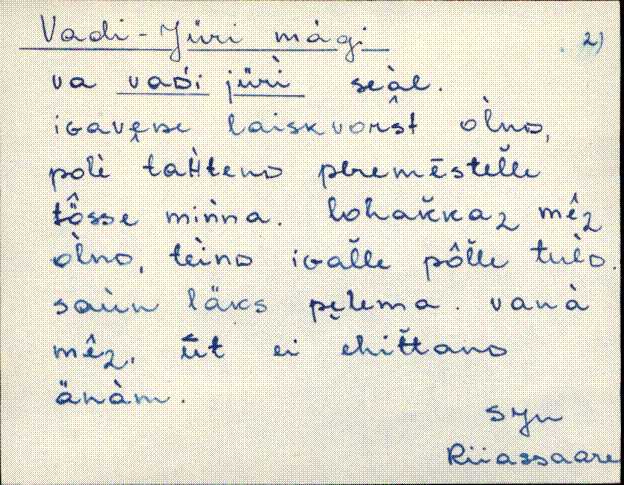 Vadi-Jüri mägi
2)
va vaďi jüri seàl.
igavẹne laiskvorst òlno,
polè tahtteno peremēstelle
tôsse miǹna. lohakkaz mêz
òlno, teìno igaľle pôlle tulò.
saùn läks pẹlema. vanà
mêz, üt ei ehittano
änàm.
Syn
Riiassaare